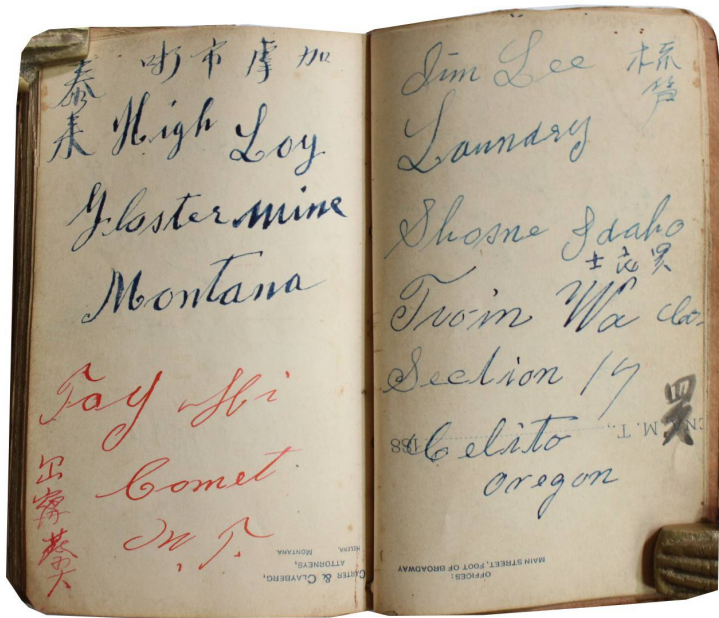 泰來
加 市
High Loy
Gloster mine
Montana
Tay Hi
Comet
M. T.
CARTER & CLAYBERG,
ATTORNEYS,
HELENA, MONTANA.
Jim Lee
Laundry
Shosne Idaho
Troin Wa Co.
Section 17
M. T., 188
Celito
oregon
OFFICES:
MAIN STREET, FOOT OF BROADWAY